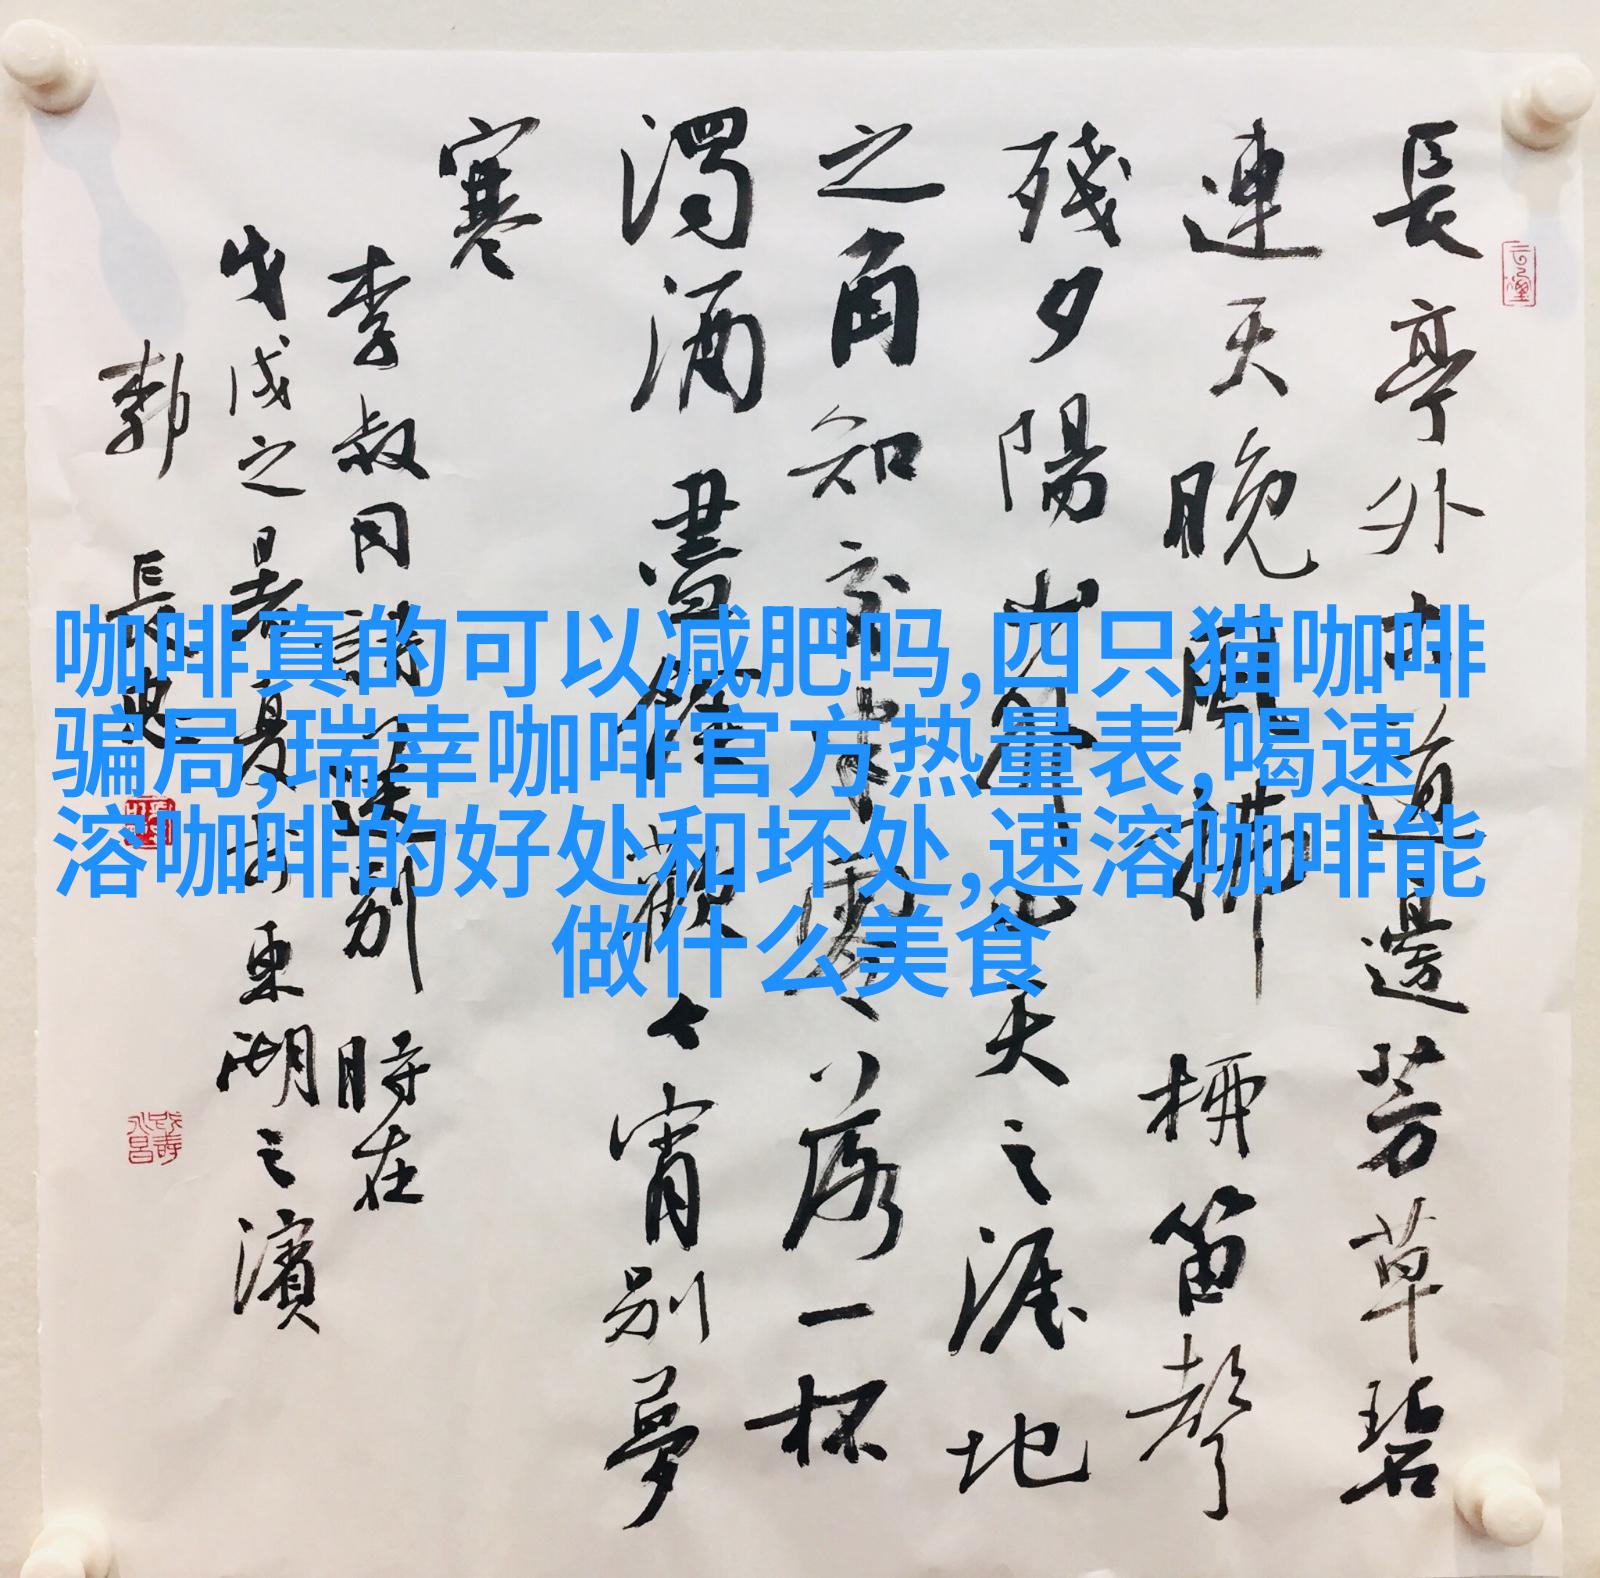 長亭外古道邊芳草碧
連天晚風拂柳笛聲
殘夕陽山外山天之涯地
之角知交半零落一杯
濁酒盡餘歡今宵別夢
寒
李叔同詩送別時在
戊戌之暑夏於東湖之濱
長
咖啡真的可以减肥吗,四只猫咖啡
骗局,瑞幸咖啡官方热量表,喝速
溶咖啡的好处和坏处,速溶咖啡能
做什么美食